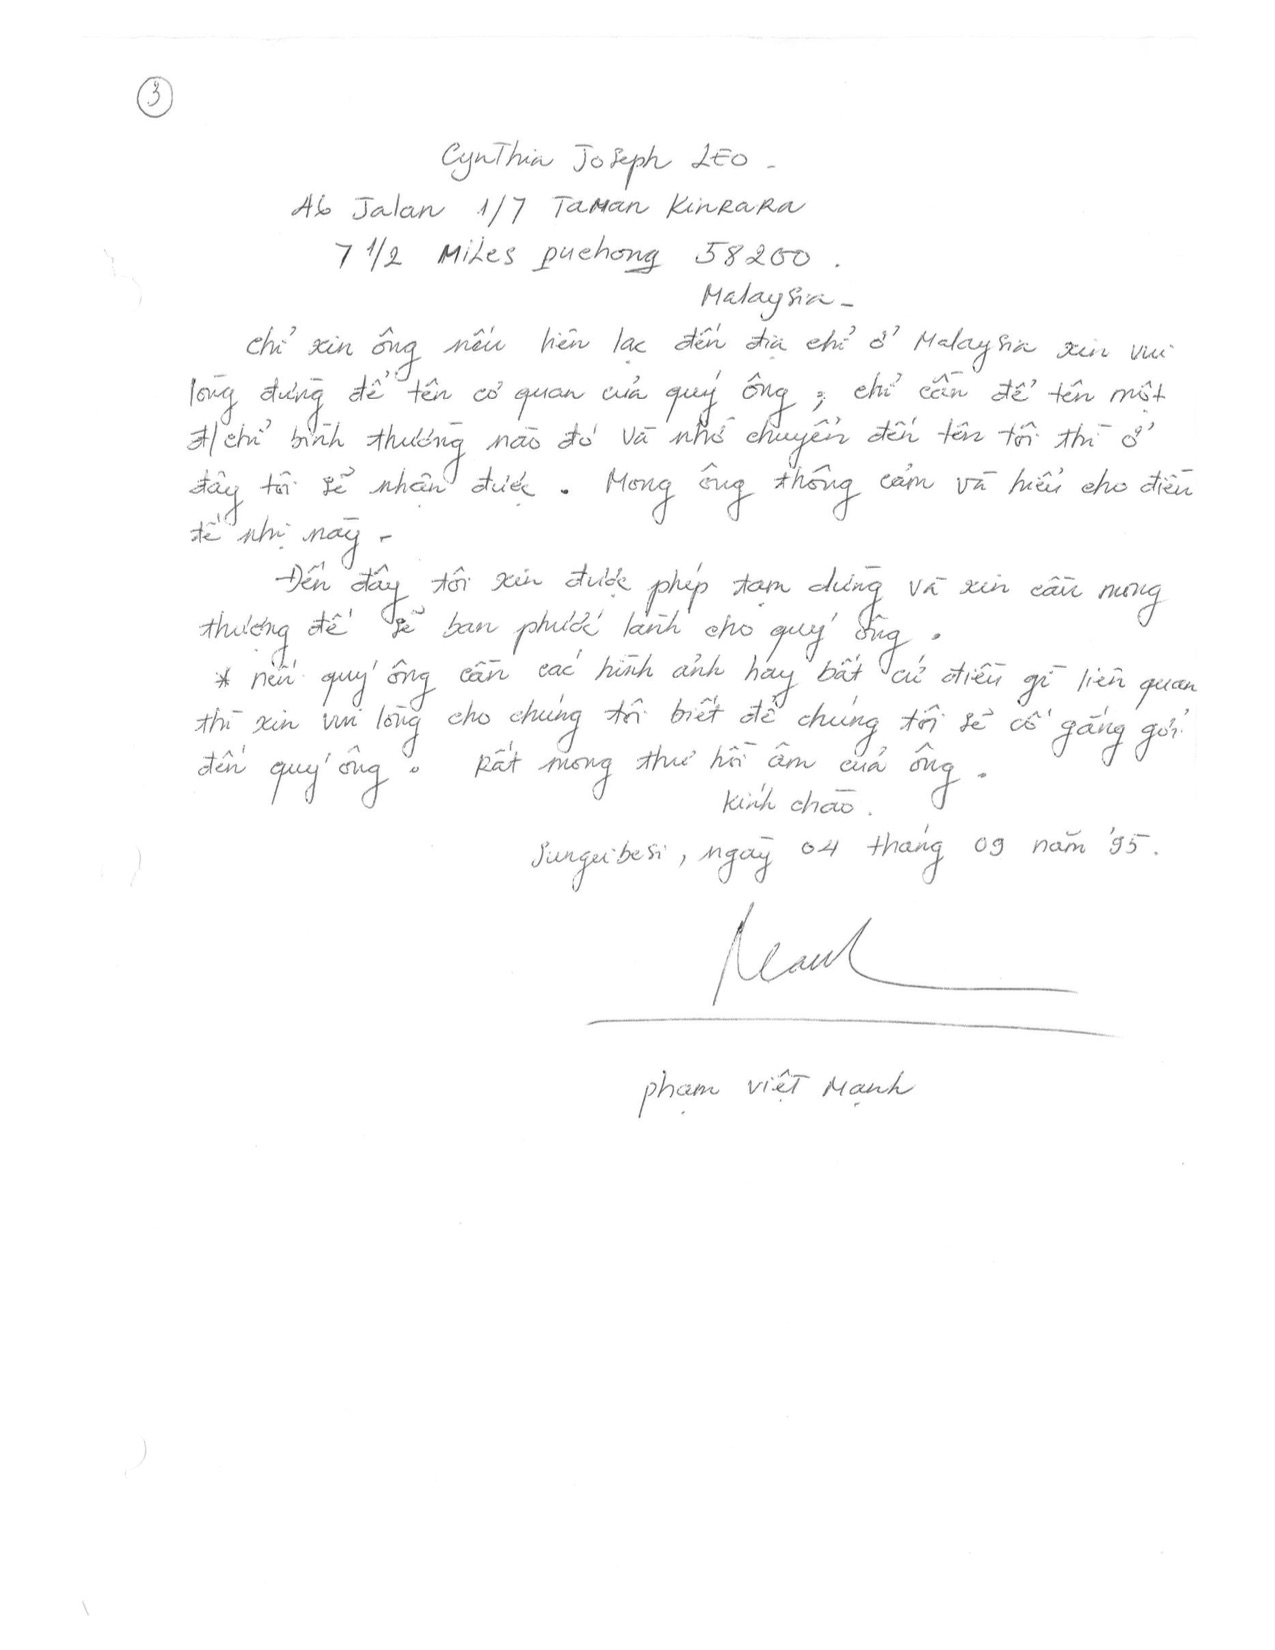 3
Cynthia Joseph LEO -
A6 Jalan 1/7 Taman Kinrara
7 1/2 Miles puchong 58200 .
Malaysia -
Chỉ xin ông nếu liên lạc đến địa chỉ ở Malaysia xin vui
lòng đừng để tên cơ quan của quý ông ; chỉ cần để tên một
đ/chỉ bình thường nào đó và nhờ chuyển đến tên tôi thì ở
đây tôi sẽ nhận được . Mong ông thông cảm và hiểu cho điều
đề nhị này -
Đến đây tôi xin được phép tạm dừng và xin cầu mong
thượng đế sẽ ban phước lành cho quý ông .
* nếu quý ông cần các hình ảnh hay bất cứ điều gì liên quan
thì xin vui lòng cho chúng tôi biết để chúng tôi sẽ cố gắng gởi
đến quý ông . Rất mong thư hồi âm của ông .
Kính chào .
Sungeibesi , ngày 04 tháng 09 năm '95 .
phạm việt Mạnh